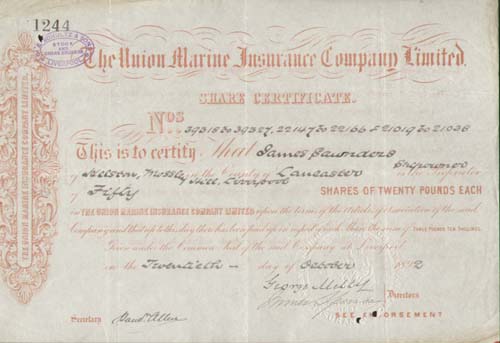 1244
STOCK
AND
SHARE BROKERS
LIVERPOOL
The Union Marine Insurance Company Limited.
SHARE CERTIFICATE.
Nos 39318 to 39327, 22147 to 22166 & 21019 to 21038
This is to certify that James Saunders Shipowner
of Mossley Hill, Liverpool in the County of Lancaster is the Proprietor
of Fifty SHARES OF TWENTY POUNDS EACH
IN THE UNION MARINE INSURANCE COMPANY LIMITED upon the terms of the Articles of Association of the said
Company and that up to this day there has been paid up in respect of each Share the sum of THREE POUNDS TEN SHILLINGS.
Given under the Common Seal of the said Company at Liverpool
on the Twentieth day of October
George
Directors
Secretary
SEE ENDORSEMENT
THE UNION MARINE INSURANCE COMPANY LIMITED.